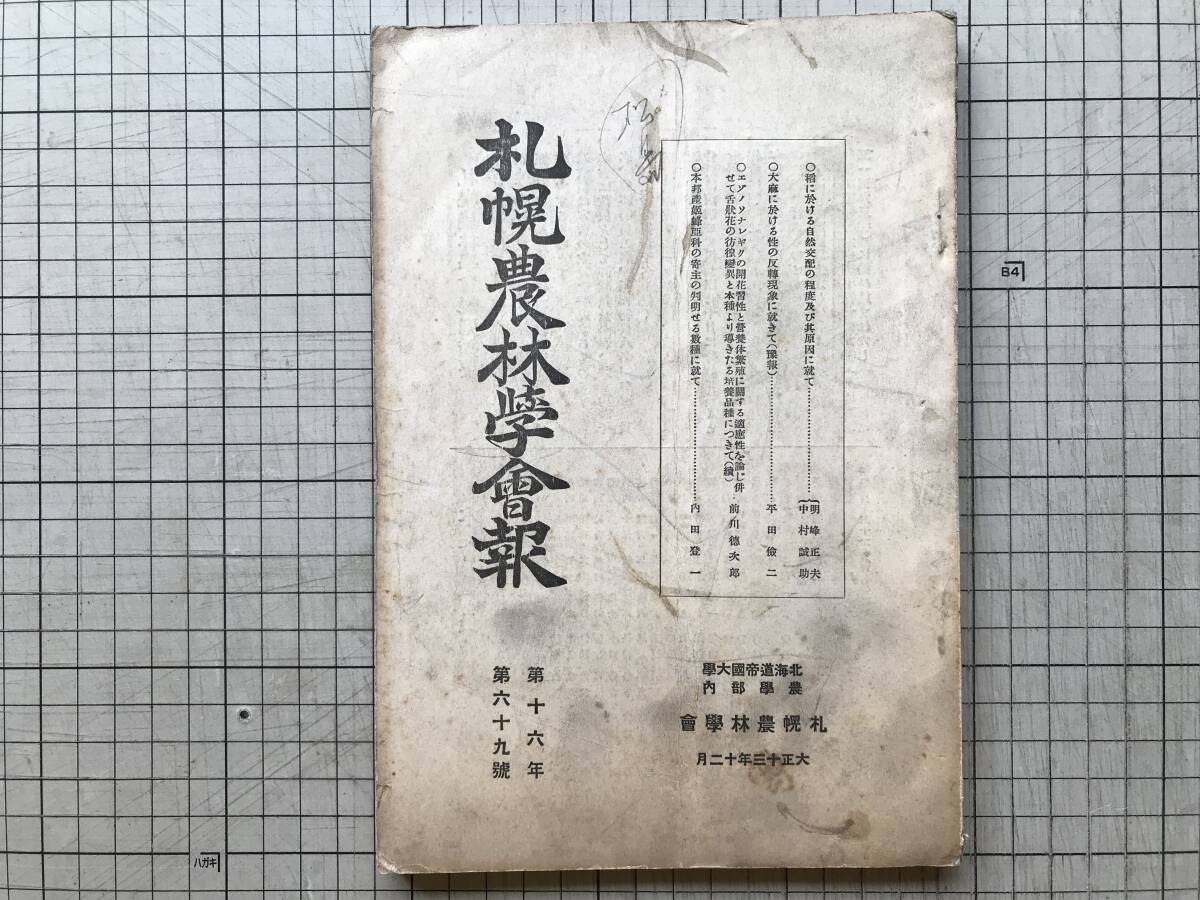 札幌農林學會報
第十六年
第六十九號
○稻に於ける自然交配の程度及び其原因に就て
明峰正夫
中村誠助
○大麻に於ける性の反轉現象に就きて(豫報)
平田儉二
○エゾノソナレギクの開花習性と營養体繁殖に關する適應性を論じ併
せて舌狀花の彷徨變異と本種より導きたる培養品種につきて(續)
前川德次郎
○本邦產姬蜂科の寄主の判明せる數種に就て
內田登一
北海道帝國大學
農學部內
札幌農林學會
大正十三年十二月
B4
ハガキ